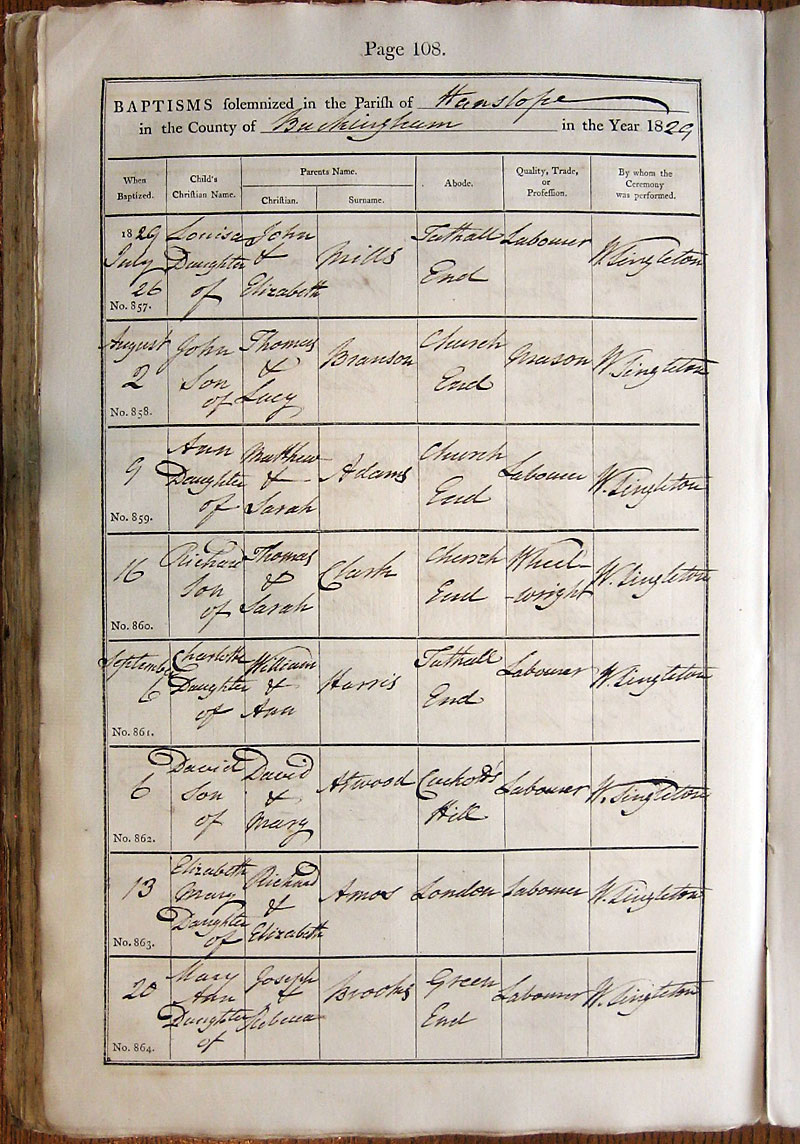 Page 108.
BAPTISMS ſolemnized in the Pariſh of Hanslope
in the County of Buckingham in the Year 1829
When Baptized. Child's Chriſtian Name. Parents Name. Abode. Quality, Trade, or Profeſſion. By whom the Ceremony was performed.
Chriſtian. Surname.
1829 Louisa John Tathall Labourer
July Daughter & Mills W. Singleton
26 of Elizabeth End
No. 857.
August John Thomas Church
2 Son & Branson Mason W. Singleton
of Lucy End
No. 858.
Ann Matthew Church
9 Daughter & Adams Labourer W. Singleton
of Sarah End
No. 859.
Richard Thomas Church Wheel-
16 Son & Clark W. Singleton
of Sarah End -wright
No. 860.
September Charlotte William Tathall Labourer
6 Daughter & Harris W. Singleton
of Ann End
No. 861.
David David Atwood Cuckold's
6 Son & Labourer W. Singleton
of Mary Hill
No. 862.
Elizabeth Richard
13 Mary & Amos London Labourer W. Singleton
Daughter Elizabeth
of
No. 863.
Mary Joseph Green
20 Ann & Brooks Labourer W. Singleton
Daughter Rebecca End
of
No. 864.